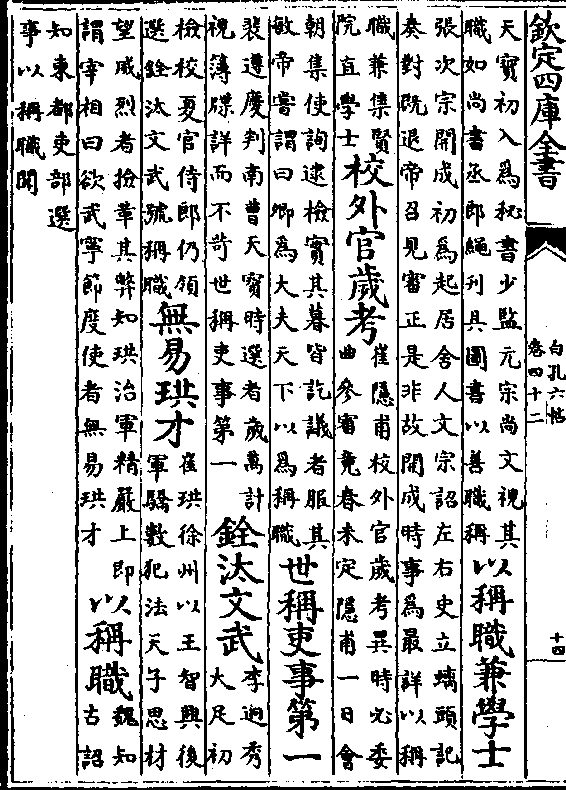 欽定四庫全書
白孔六帖
卷四十二
十四
天寳初入為秘書少監元宗尚文視其
職如尚書丞郎繩列具圖書以善職稱
以稱職兼學士
張次宗開成初為起居舍人文宗詔左右史立螭頭記
奏對既退帝召見審正是非故開成時事為最詳以稱
職兼集賢
院直學士
校外官歲考
崔隱甫校外官歲考異時必委
曲參審竟春未定隱甫一日會
朝集使詢逮檢實其暮皆訖議者服其
敏帝嘗謂曰卿為大夫天下以為稱職
世稱吏事第一
裴遵慶判南曹天寳時選者歲萬計
視簿牒詳而不苛世稱吏事第一
銓汰文武
李迥秀
大足初
檢校夏官侍郎仍領
選銓汰文武號稱職
無易珙才
崔珙徐州以王智興後
軍驕數犯法天子思材
望威烈者撿革其弊知珙治軍精嚴上即
謂宰相曰欲武寧節度使者無易珙才
以稱職
魏知
古詔
知東都吏部選
事以稱職聞